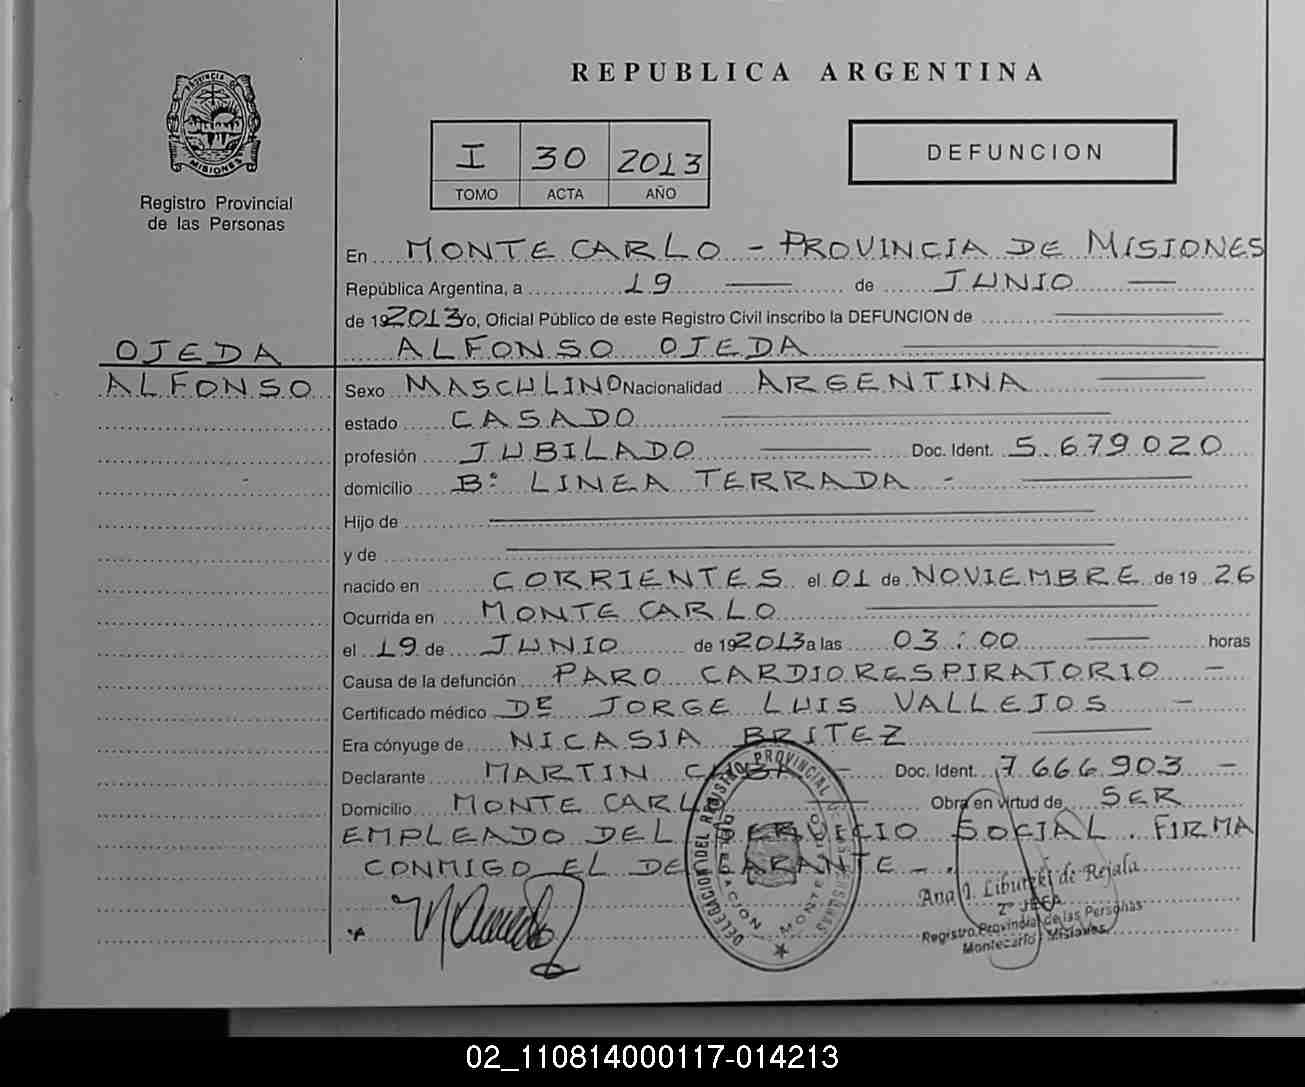 REPUBLICA ARGENTINA
PROVINCIA DE
MISIONES
Registro Provincial
de las Personas
I 30 2013
TOMO ACTA AÑO
DEFUNCION
En MONTE CARLO - PROVINCIA DE MISIONES
República Argentina, a 19 de JUNIO
de 19 2013 Yo, Oficial Público de este Registro Civil inscribo la DEFUNCION de
OJEDA ALFONSO OJEDA
ALFONSO Sexo MASCULINO Nacionalidad ARGENTINA
estado CASADO
profesión JUBILADO Doc. Ident. 5.679020
domicilio Bº LINEA TERRADA -
Hijo de
y de
nacido en CORRIENTES el 01 de NOVIEMBRE de 19 26
Ocurrida en MONTE CARLO
el 19 de JUNIO de 19 2013 a las 03:00 horas
Causa de la defunción PARO CARDIORESPIRATORIO -
Certificado médico DE JORGE LUIS VALLEJOS -
Era cónyuge de NICASIA BRITEZ
Declarante MARTIN - Doc. Ident. 7.666.903 -
Domicilio MONTE CARLO Obra en virtud de SER
EMPLEADO DEL SERVICIO SOCIAL. FIRMA
CONMIGO EL DECLARANTE -.
DELEGACION DEL REGISTRO PROVINCIAL DE LAS PERSONAS
Ana I. de Rejala
2º JEFA
Registro Provincial de las Personas
Montecarlo - Misiones
02_110814000117-014213